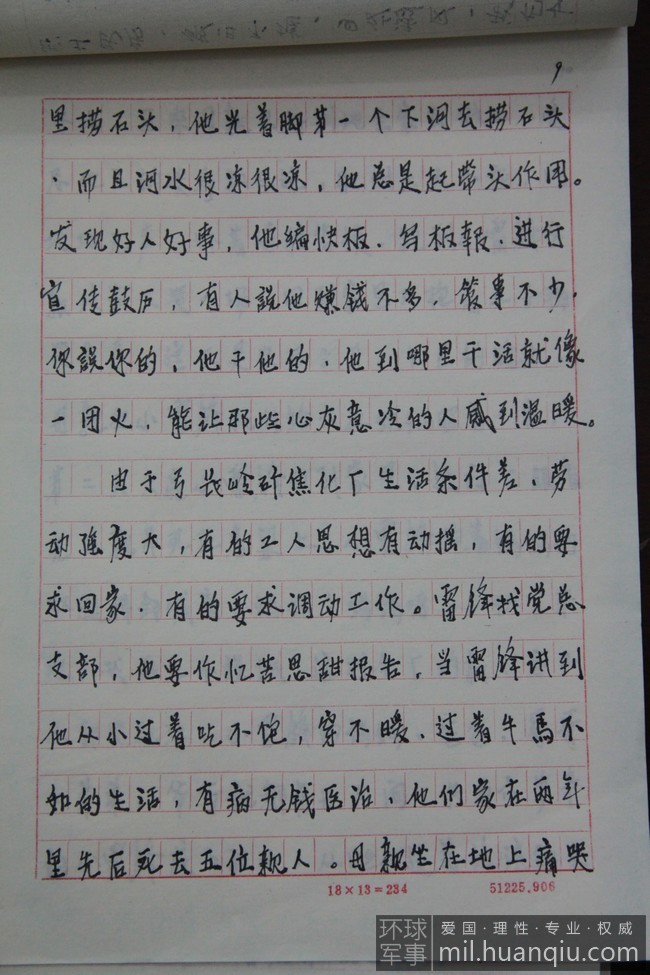 9
里捞石头，他光着脚第一个下河去捞石头
，而且河水很凉很凉，他总是起带头作用。
发现好人好事，他编快板、写板報，进行
宣传鼓厉，有人説他赚钱不多，管事不少，
你説你的，他干他的，他到哪里干活就像
一团火，能让那些心灰意冷的人感到温暖。
由于弓长岭矿焦化厂生活条件差，劳
动强度大，有的工人思想有动摇，有的要
求回家，有的要求调动工作。雷锋找党总
支部，他要作忆苦思甜报告，当雷锋讲到
他从小过着吃不饱，穿不暖，过着牛馬不
如的生活，有病无钱医治，他们家在两年
里先后死去五位親人。母親坐在地上痛哭
18×13=234
51225.906
环球军事
爱国·理性·专业·权威
mil.huanqiu.com